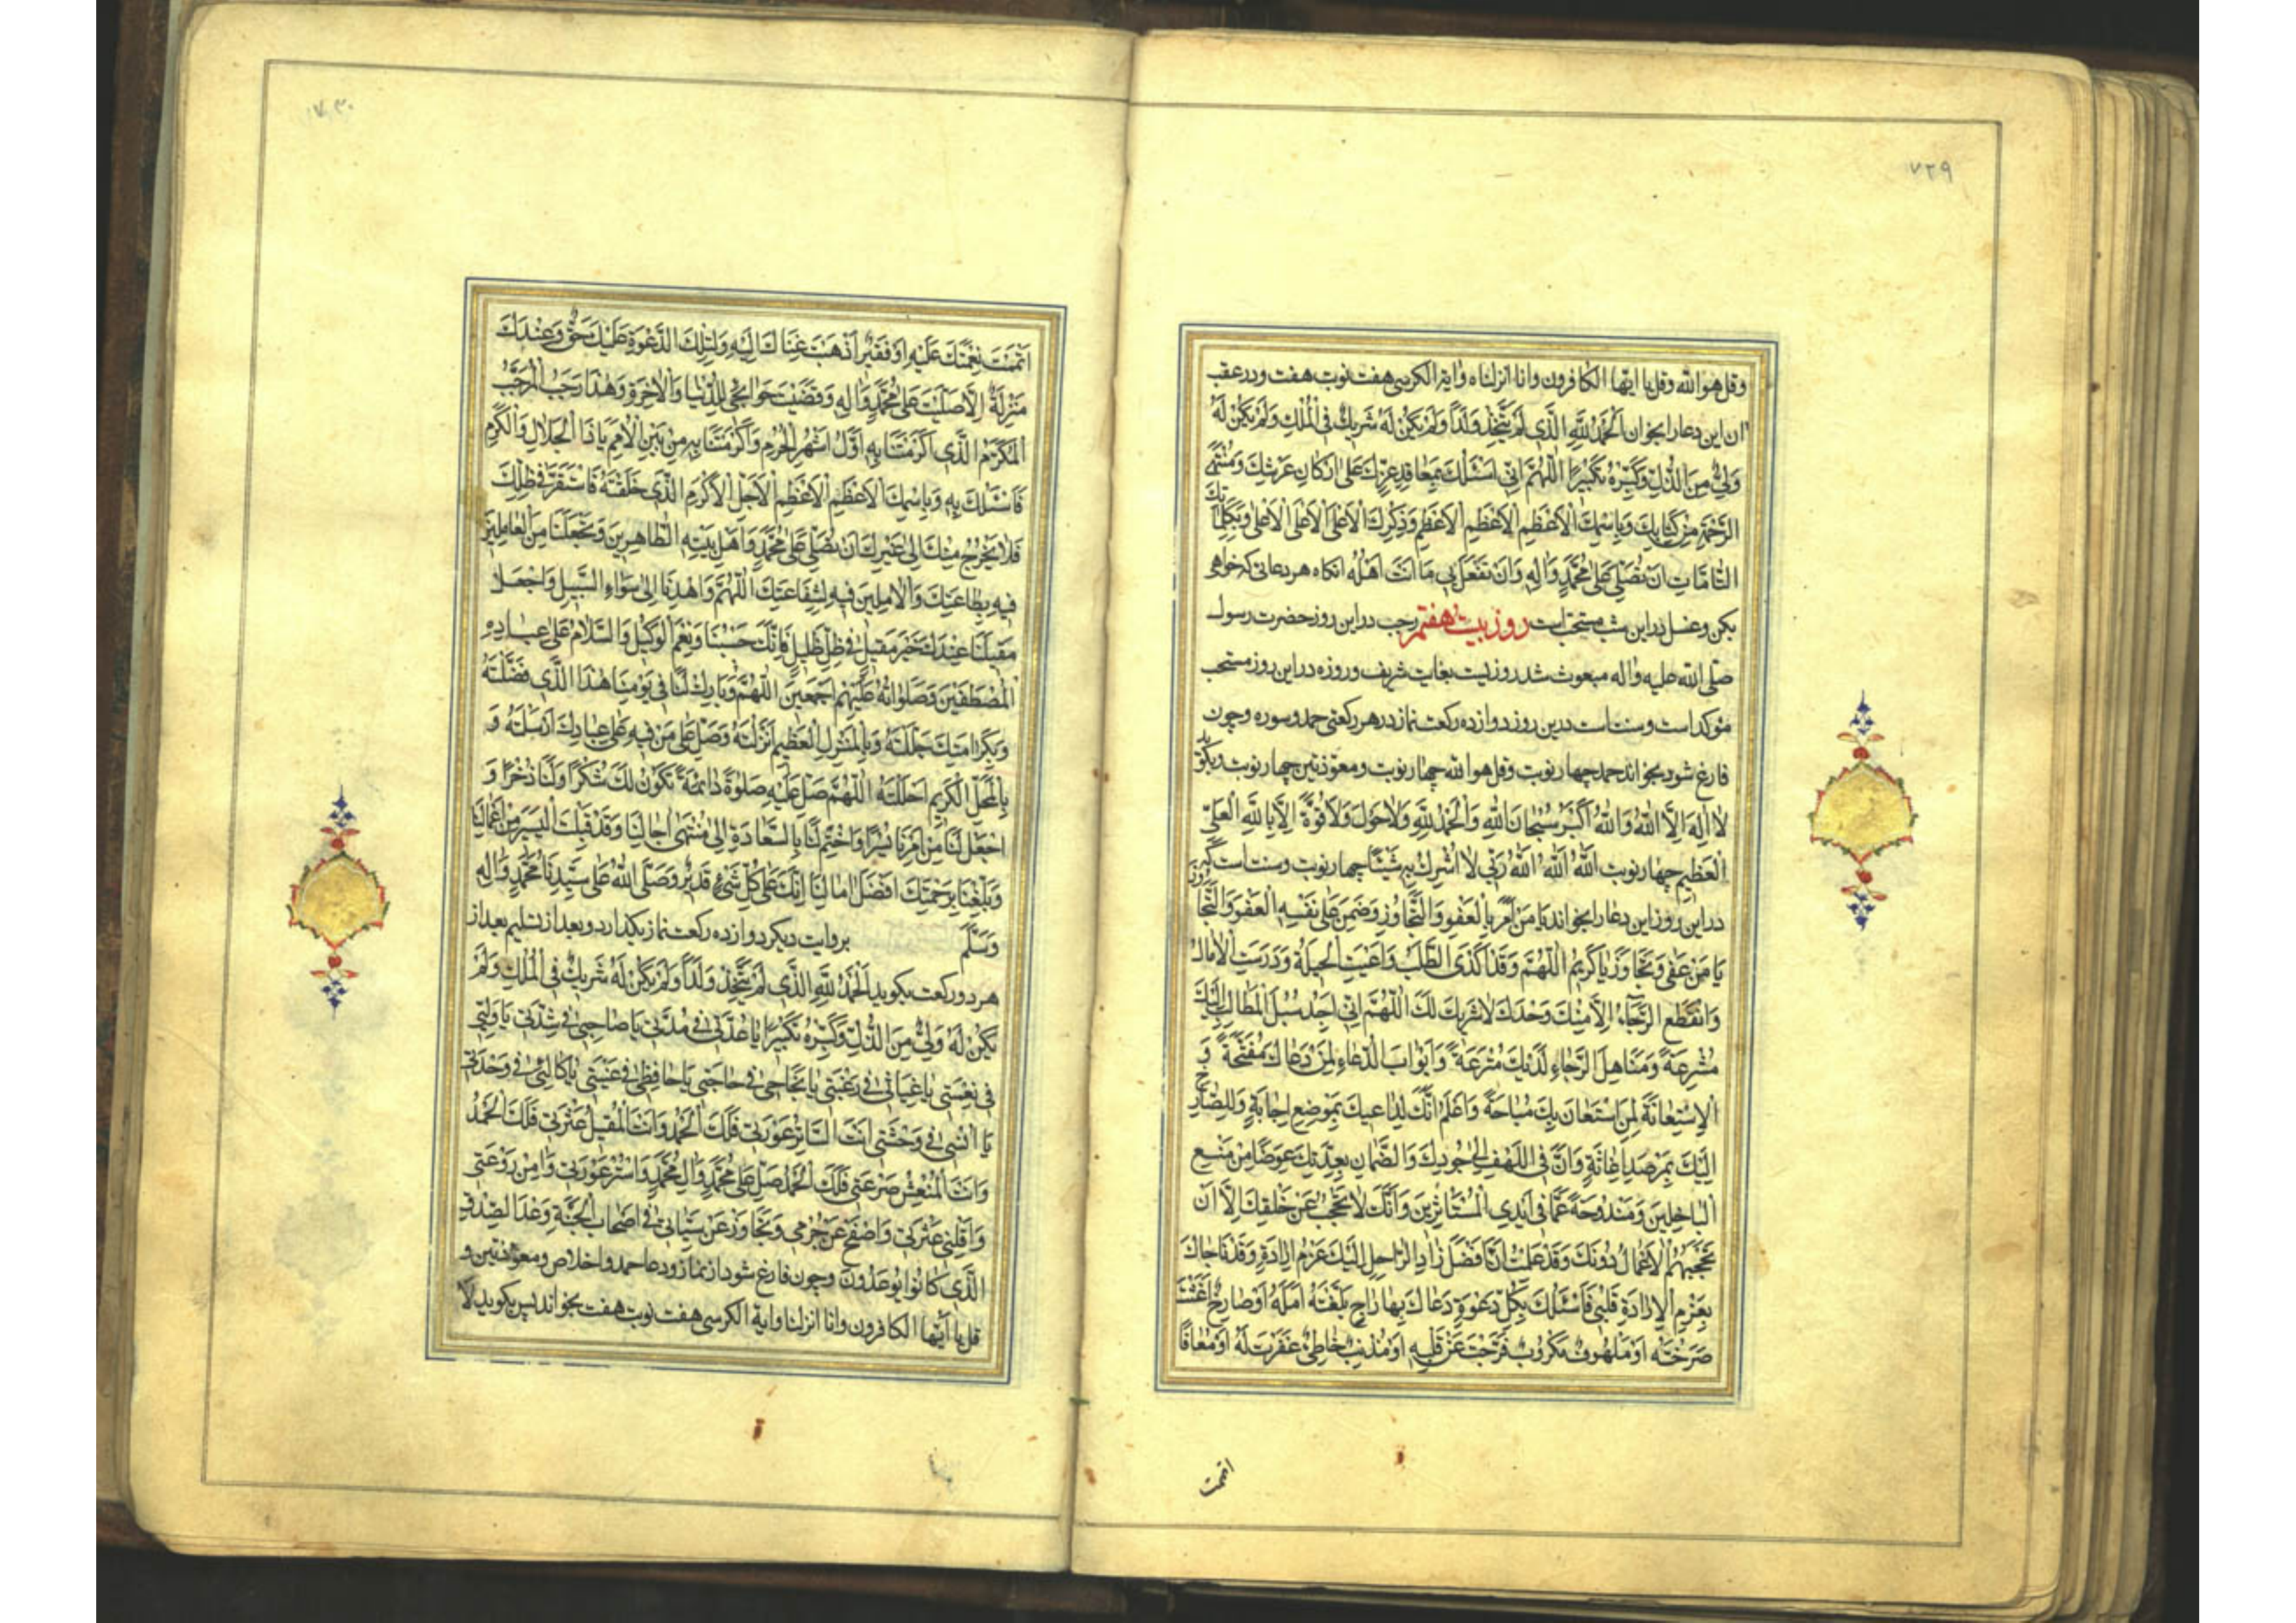 ۷۲۹
وقل هوالله وقل یا ایها الکافرون وانا انزلناه وایة الکرسی هفت نوبت هفت ودرعقب
ان این دعا رابخوان اَلْحَمْدُ لِلّٰهِ الَّذی لَمْ یَتَّخِذْ وَلَداً وَلَمْ یَکُنْ لَهُ شَریکٌ فِی الْمُلْکِ وَلَمْ یَکُنْ لَهُ
وَلِیٌّ مِنَ الذُّلِّ وَکَبِّرْهُ تَکْبیراً اَللّٰهُمَّ اِنّی اَسْئَلُکَ بِمَعاقِدِ عِزِّکَ عَلٰی اَرْکانِ عَرْشِکَ وَمُنْتَهَی
الرَّحْمَةِ مِنْ کِتابِکَ وَبِاسْمِکَ الْاَعْظَمِ الْاَعْظَمِ الْاَعْظَمِ وَذِکْرِکَ الْاَعْلَی الْاَعْلَی الْاَعْلٰی وَبِکَلِماتِکَ
التّامّاتِ اَنْ تُصَلِّیَ عَلٰی مُحَمَّدٍ وَالِهِ وَاَنْ تَفْعَلَ بی ما اَنْتَ اَهْلُهُ انکاه هر دعائی که خواهی
بکن وغسل دراین شب مستحب است روز بیست هفتم رجب دراین روز حضرت رسول
صلی الله علیه واله مبعوث شد روزیست بغایت شریف وروزه دراین روز مستحب
مؤکد است وسنت است درین روز دوازده رکعت نماز درهر رکعتی حمد وسوره وچون
فارغ شود بخواند حمد چهار نوبت وقل هوالله چهار نوبت ومعوذتین چهار نوبت وبکوید
لا اِلٰهَ اِلَّا اللهُ وَاللهُ اَکْبَرُ سُبْحانَ اللهِ وَالْحَمْدُ لِلّٰهِ وَلا حَوْلَ وَلا قُوَّةَ اِلّا بِاللهِ الْعَلِیِّ
الْعَظیمِ چهار نوبت اَللهُ اَللهُ اَللهُ رَبّی لا اُشْرِکُ بِهِ شَیْئاً چهار نوبت وسنت است که
دراین روز این دعا رابخواند یا مَنْ اَمَرَ بِالْعَفْوِ وَالتَّجاوُزِ وَضَمِنَ عَلٰی نَفْسِهِ الْعَفْوَ وَالتَّجاوُزَ
یا مَنْ عَفٰی وَتَجاوَزَ یا کَریمُ اَللّٰهُمَّ وَقَدْ اَکْدَی الطَّلَبُ وَاَعْیَتِ الْحیلَةُ وَدَرَسَتِ الْاٰمالُ
وَانْقَطَعَ الرَّجاءُ اِلّا مِنْکَ وَحْدَکَ لا شَریکَ لَکَ اَللّٰهُمَّ اِنّی اَجِدُ سُبُلَ الْمَطالِبِ اِلَیْکَ
مُشْرَعَةً وَمَناهِلَ الرَّجاءِ لَدَیْکَ مُتْرَعَةً وَاَبْوابَ الدُّعاءِ لِمَنْ دَعاکَ مُفَتَّحَةً وَ
الْاِسْتِعانَةَ لِمَنِ اسْتَعانَ بِکَ مُباحَةً وَاَعْلَمُ اَنَّکَ لِداعیکَ بِمَوْضِعِ اِجابَةٍ وَلِلصّارِخِ
اِلَیْکَ بِمَرْصَدِ اِغاثَةٍ وَاَنَّ فِی اللَّهْفِ اِلٰی جُودِکَ وَالضَّمانِ بِعِدَتِکَ عِوَضاً مِنْ مَنْعِ
الْباخِلینَ وَمَنْدُوحَةً عَمّا فی اَیْدِی الْمُسْتَاْثِرینَ وَاَنَّکَ لا تَحْتَجِبُ عَنْ خَلْقِکَ اِلّا اَنْ
تَحْجُبَهُمُ الْاَعْمالُ دُونَکَ وَقَدْ عَلِمْتُ اَنَّ اَفْضَلَ زادِ الرّاحِلِ اِلَیْکَ عَزْمُ اِرادَةٍ وَقَدْ ناجاکَ
بِعَزْمِ الْاِرادَةِ قَلْبی فَاَسْئَلُکَ بِکُلِّ دَعْوَةٍ دَعاکَ بِها راجٍ بَلَّغْتَهُ اَمَلَهُ اَوْ صارِخٌ اَغَثْتَ
صَرْخَتَهُ اَوْ مَلْهُوفٌ مَکْرُوبٌ فَرَّجْتَ عَنْ قَلْبِهِ اَوْ مُذْنِبٌ خاطِئٌ غَفَرْتَ لَهُ اَوْ مُعافاً
اتممت
۷۳۰
اَتْمَمْتَ نِعْمَتَکَ عَلَیْهِ اَوْ فَقیرٌ اَذْهَبْتَ غِناکَ اِلَیْهِ وَلِتِلْکَ الدَّعْوَةِ عَلَیْکَ حَقٌّ وَعِنْدَکَ
مَنْزِلَةٌ اِلّا صَلَّیْتَ عَلٰی مُحَمَّدٍ وَالِهِ وَقَضَیْتَ حَوائِجی لِلدُّنْیا وَالْاٰخِرَةِ وَهٰذا رَجَبُ الْمُرَجَّبُ
الْمُکَرَّمُ الَّذی اَکْرَمْتَنا بِهِ اَوَّلُ اَشْهُرِ الْحُرُمِ وَاَکْرَمْتَنا بِهِ مِنْ بَیْنِ الْاُمَمِ یا ذَا الْجَلالِ وَالْکَرَمِ
فَاَسْئَلُکَ بِهِ وَبِاسْمِکَ الْاَعْظَمِ الْاَعْظَمِ الْاَعْظَمِ الْاَجَلِّ الْاَکْرَمِ الَّذی خَلَقْتَهُ فَاسْتَقَرَّ فی ظِلِّکَ
فَلا یَخْرُجُ مِنْکَ اِلٰی غَیْرِکَ اَنْ تُصَلِّیَ عَلٰی مُحَمَّدٍ وَاَهْلِ بَیْتِهِ الطّاهِرینَ وَتَجْعَلَنا مِنَ الْعامِلینَ
فیهِ بِطاعَتِکَ وَالْاٰمِلینَ فیهِ لِشَفاعَتِکَ اَللّٰهُمَّ وَاهْدِنا اِلٰی سَواءِ السَّبیلِ وَاجْعَلْ
مَقیلَنا عِنْدَکَ خَیْرَ مَقیلٍ فی ظِلٍّ ظَلیلٍ فَاِنَّکَ حَسْبُنا وَنِعْمَ الْوَکیلُ وَالسَّلامُ عَلٰی عِبادِهِ
الْمُصْطَفَیْنَ وَصَلَواتُهُ عَلَیْهِمْ اَجْمَعینَ اَللّٰهُمَّ وَبارِکْ لَنا فی یَوْمِنا هٰذَا الَّذی فَضَّلْتَهُ
وَبِکَرامَتِکَ جَلَّلْتَهُ وَبِالْمَنْزِلِ الْعَظیمِ اَنْزَلْتَهُ وَصَلِّ عَلٰی مَنْ فیهِ عَلٰی عِبادِکَ اَرْسَلْتَهُ وَ
بِالْمَحَلِّ الْکَریمِ اَحْلَلْتَهُ اَللّٰهُمَّ صَلِّ عَلَیْهِ صَلوةً دائِمَةً تَکُونُ لَکَ شُکْراً وَلَنا ذُخْراً وَ
اجْعَلْ لَنا مِنْ اَمْرِنا یُسْراً وَاخْتِمْ لَنا بِالسَّعادَةِ اِلٰی مُنْتَهٰی اٰجالِنا وَقَدْ قَبِلْتَ الْیَسیرَ مِنْ اَعْمالِنا
وَبَلِّغْنا بِرَحْمَتِکَ اَفْضَلَ اٰمالِنا اِنَّکَ عَلٰی کُلِّ شَیْءٍ قَدیرٌ وَصَلَّی اللهُ عَلٰی سَیِّدِنا مُحَمَّدٍ وَالِهِ
وَسَلَّمَ بروایت دیکر دوازده رکعت نماز بکذارد وبعد از تسلیم بعد از
هر دو رکعت بکوید اَلْحَمْدُ لِلّٰهِ الَّذی لَمْ یَتَّخِذْ وَلَداً وَلَمْ یَکُنْ لَهُ شَریکٌ فِی الْمُلْکِ وَلَمْ
یَکُنْ لَهُ وَلِیٌّ مِنَ الذُّلِّ وَکَبِّرْهُ تَکْبیراً یا عُدَّتی فی مُدَّتی یا صاحِبی فی شِدَّتی یا وَلِیّی
فی نِعْمَتی یا غِیاثی فی رَغْبَتی یا نَجاحی فی حاجَتی یا حافِظی فی غَیْبَتی یا کالِئی فی وَحْدَتی
یا اُنْسی فی وَحْشَتی اَنْتَ السّاتِرُ عَوْرَتی فَلَکَ الْحَمْدُ وَاَنْتَ الْمُقیلُ عَثْرَتی فَلَکَ الْحَمْدُ
وَاَنْتَ الْمُنْعِشُ صَرْعَتی فَلَکَ الْحَمْدُ صَلِّ عَلٰی مُحَمَّدٍ وَالِ مُحَمَّدٍ وَاسْتُرْ عَوْرَتی وَاٰمِنْ رَوْعَتی
وَاَقِلْنی عَثْرَتی وَاصْفَحْ عَنْ جُرْمی وَتَجاوَزْ عَنْ سَیِّئاتی فی اَصْحابِ الْجَنَّةِ وَعْدَ الصِّدْقِ
الَّذی کانُوا یُوعَدُونَ وچون فارغ شود از نماز ودعا حمد واخلاص ومعوذتین و
قل یا ایّها الکافرون وانا انزلنا وایة الکرسی هفت نوبت هفت بخواند پس بکوید لا